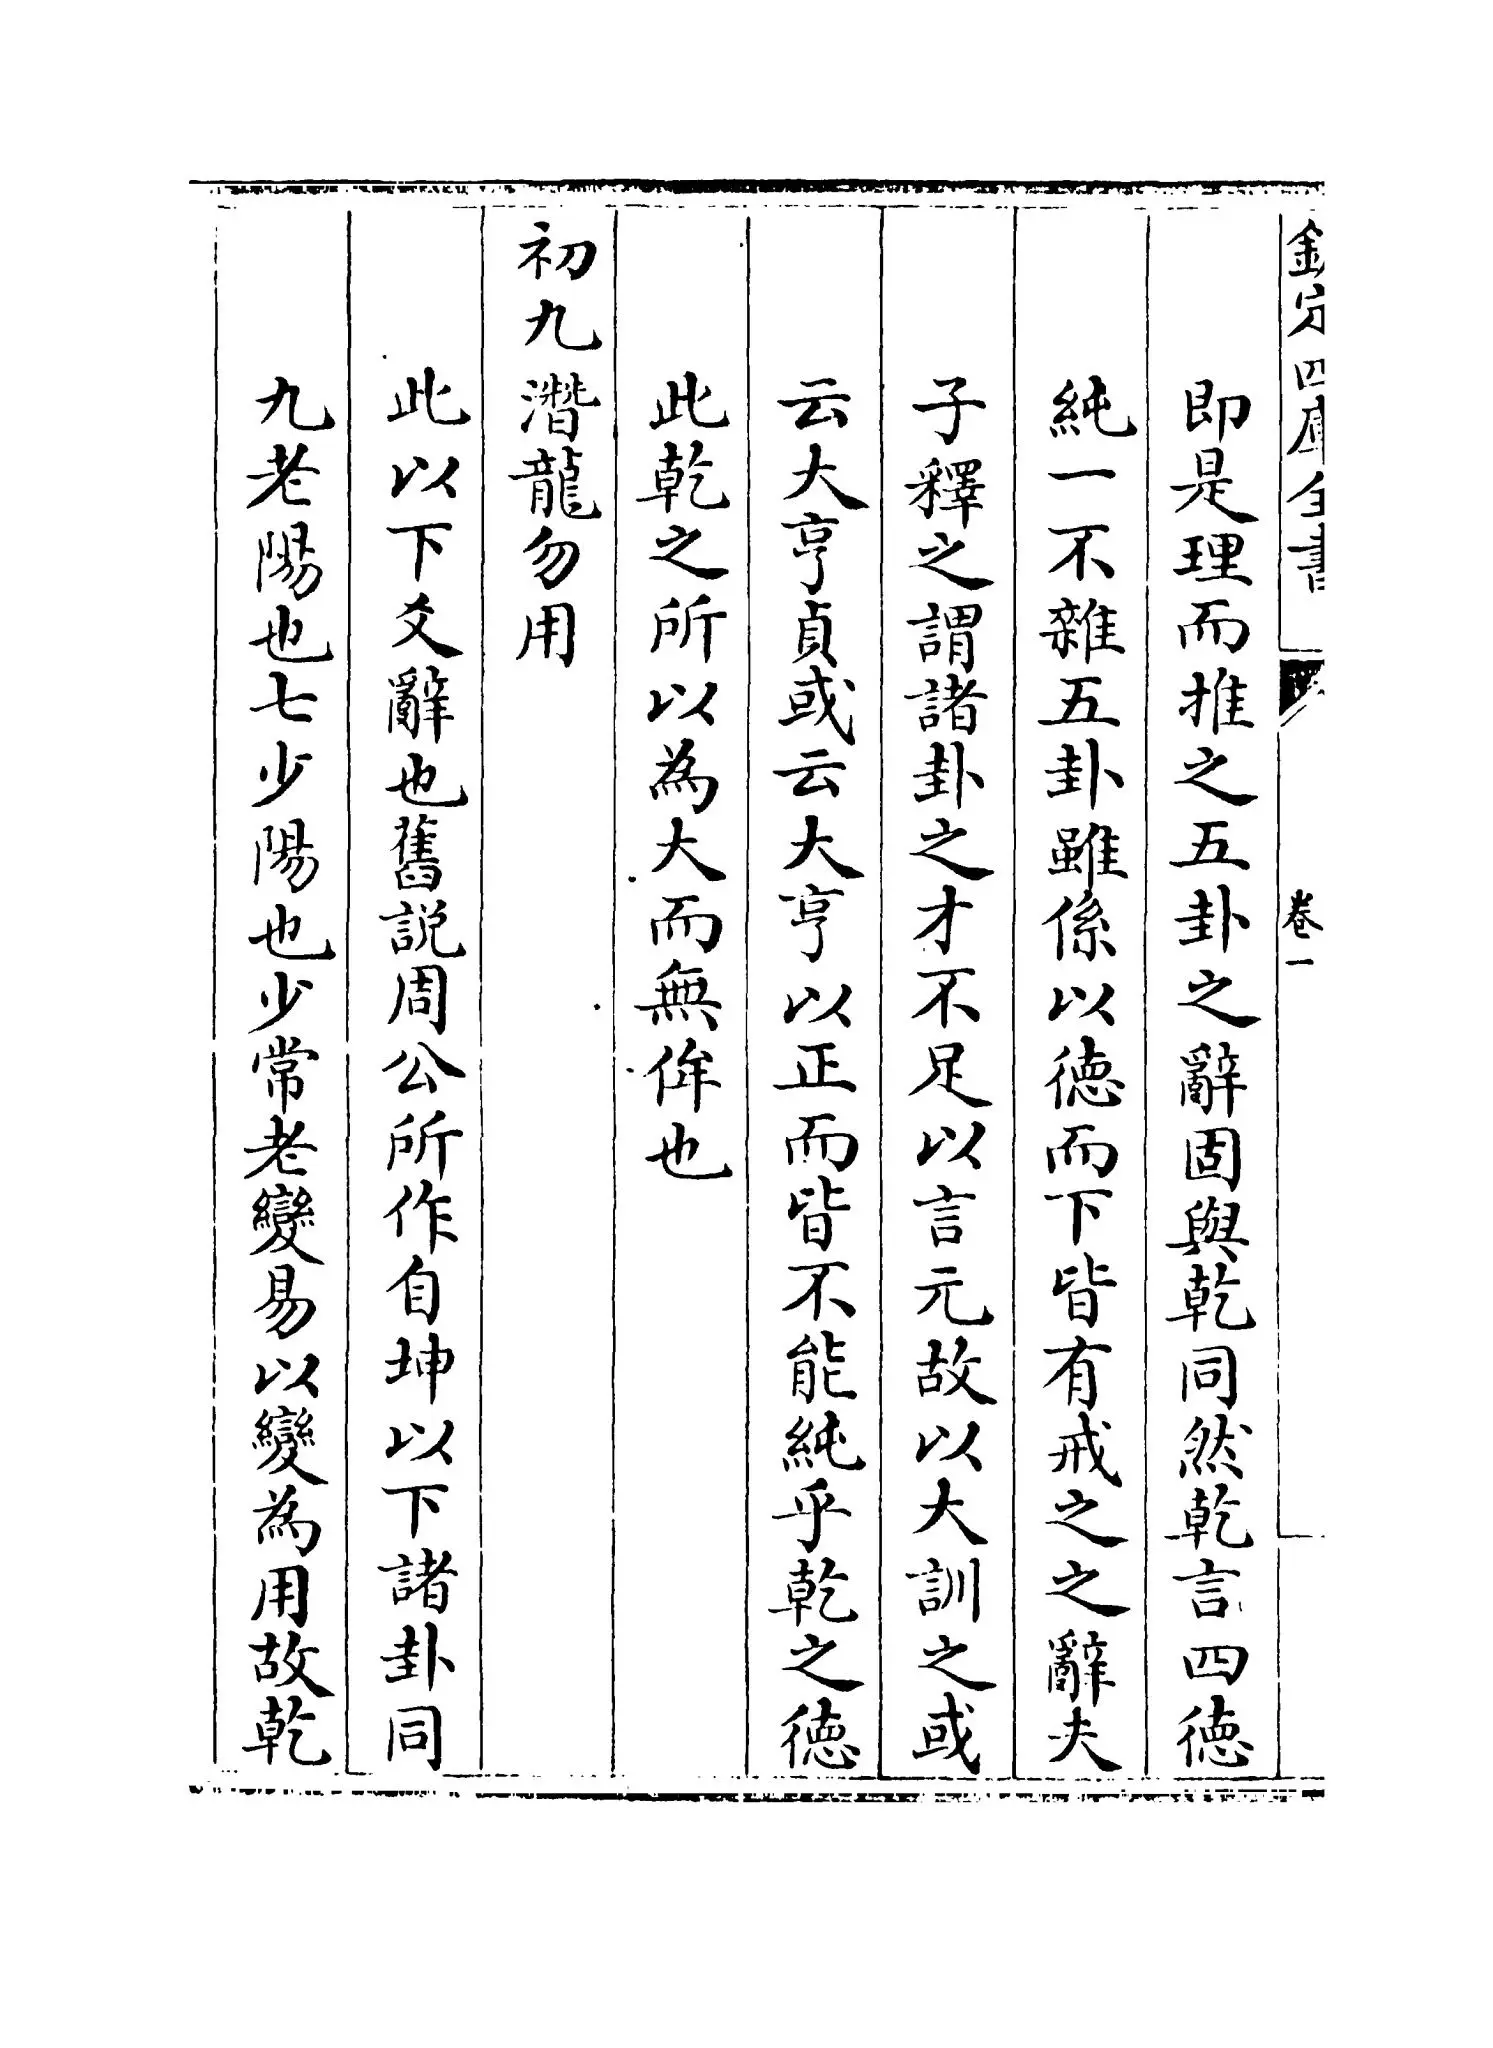 欽定四庫全書
卷一
即是理而推之五卦之辭固與乾同然乾言四徳
純一不雜五卦雖係以徳而下皆有戒之之辭夫
子釋之謂諸卦之才不足以言元故以大訓之或
云大亨貞或云大亨以正而皆不能純乎乾之徳
此乾之所以為大而無侔也
初九潛龍勿用
此以下爻辭也舊説周公所作自坤以下諸卦同
九老陽也七少陽也少常老變易以變為用故乾